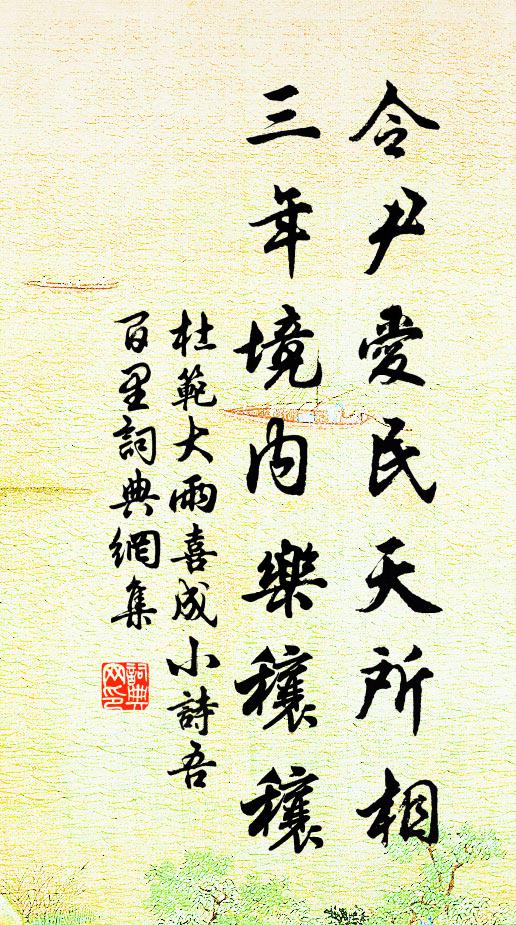 令尹愛民天所相
三年境内樂穰穰
杜範大雨喜成小詩吾
百里詞典網集
詞典网印